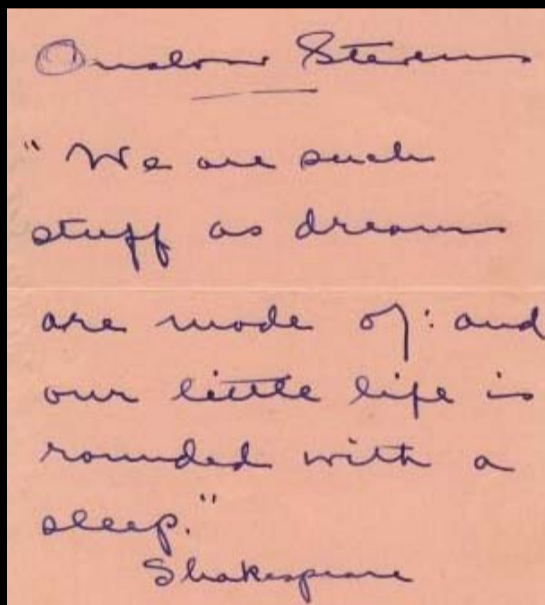 Onslow Stevens
"We are such
stuff as dreams
are made of: and
our little life is
rounded with a
sleep."
Shakespeare